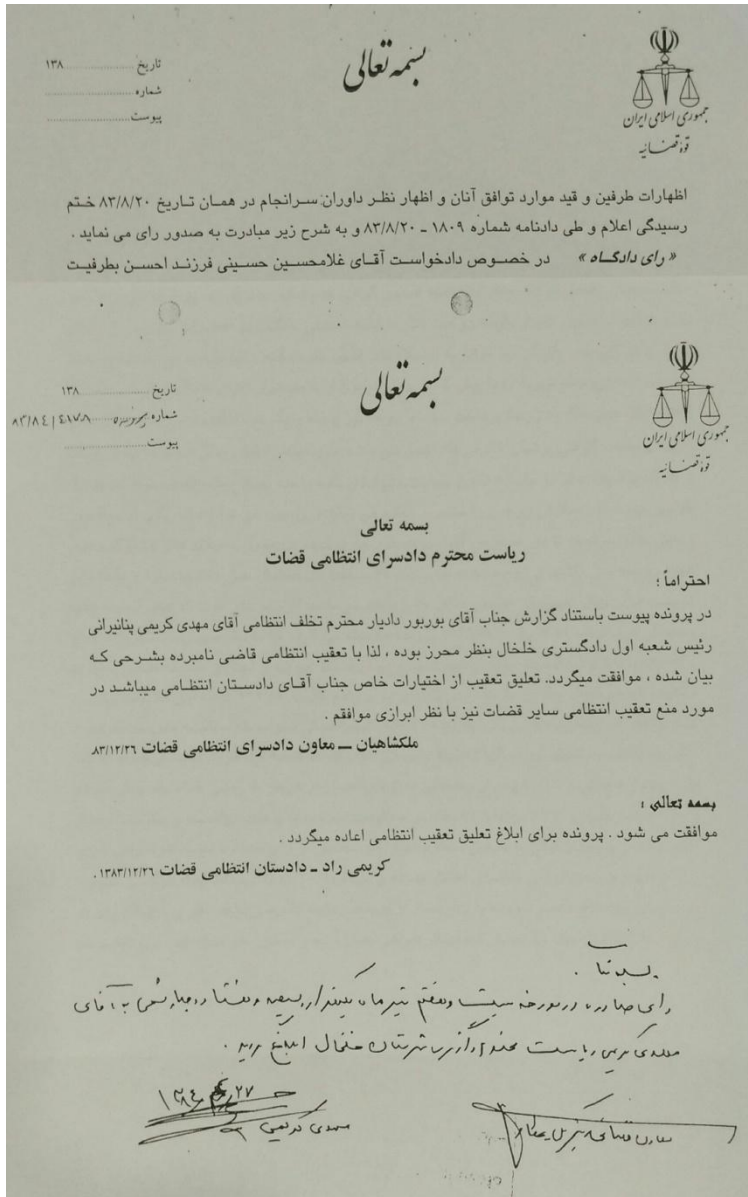 بسمه تعالی
جمهوری اسلامی ایران
قوه قضائیه
تاریخ ................ ۱۳۸
شماره ................
پیوست ................
اظهارات طرفین و قید موارد توافق آنان و اظهار نظر داوران سرانجام در همان تاریخ ۸۳/۸/۲۰ ختم
رسیدگی اعلام و طی دادنامه شماره ۱۸۰۹ ـ ۸۳/۸/۲۰ و به شرح زیر مبادرت به صدور رای می نماید .
« رای دادگاه » در خصوص دادخواست آقای غلامحسین حسینی فرزند احسن بطرفیت
بسمه تعالی
جمهوری اسلامی ایران
قوه قضائیه
تاریخ ................ ۱۳۸
شماره پرونده ۸۳/۸٤/٤۱۷۸
پیوست ................
بسمه تعالی
ریاست محترم دادسرای انتظامی قضات
احتراماً ؛
در پرونده پیوست باستناد گزارش جناب آقای بوربور دادیار محترم تخلف انتظامی آقای مهدی کریمی پنانیرانی
رئیس شعبه اول دادگستری خلخال بنظر محرز بوده ، لذا با تعقیب انتظامی قاضی نامبرده بشرحی که
بیان شده ، موافقت میگردد. تعلیق تعقیب از اختیارات خاص جناب آقای دادستان انتظامی میباشد در
مورد منع تعقیب انتظامی سایر قضات نیز با نظر ابرازی موافقم .
ملکشاهیان ــ معاون دادسرای انتظامی قضات ۸۳/۱۲/۲۶
بسمه تعالی :
موافقت می شود . پرونده برای ابلاغ تعلیق تعقیب انتظامی اعاده میگردد .
کریمی راد ـ دادستان انتظامی قضات ۱۳۸۳/۱۲/۲۶ .
رای صادره در مورخه بیست و هفتم تیر ماه یکهزار و سیصد و هشتاد و چهار شمسی به آقای
مهدی کریمی ریاست محترم دادگستری شهرستان خلخال ابلاغ گردید .
۱۳۸٤/٤/۲۷
مهدی کریمی
معاون قضائی